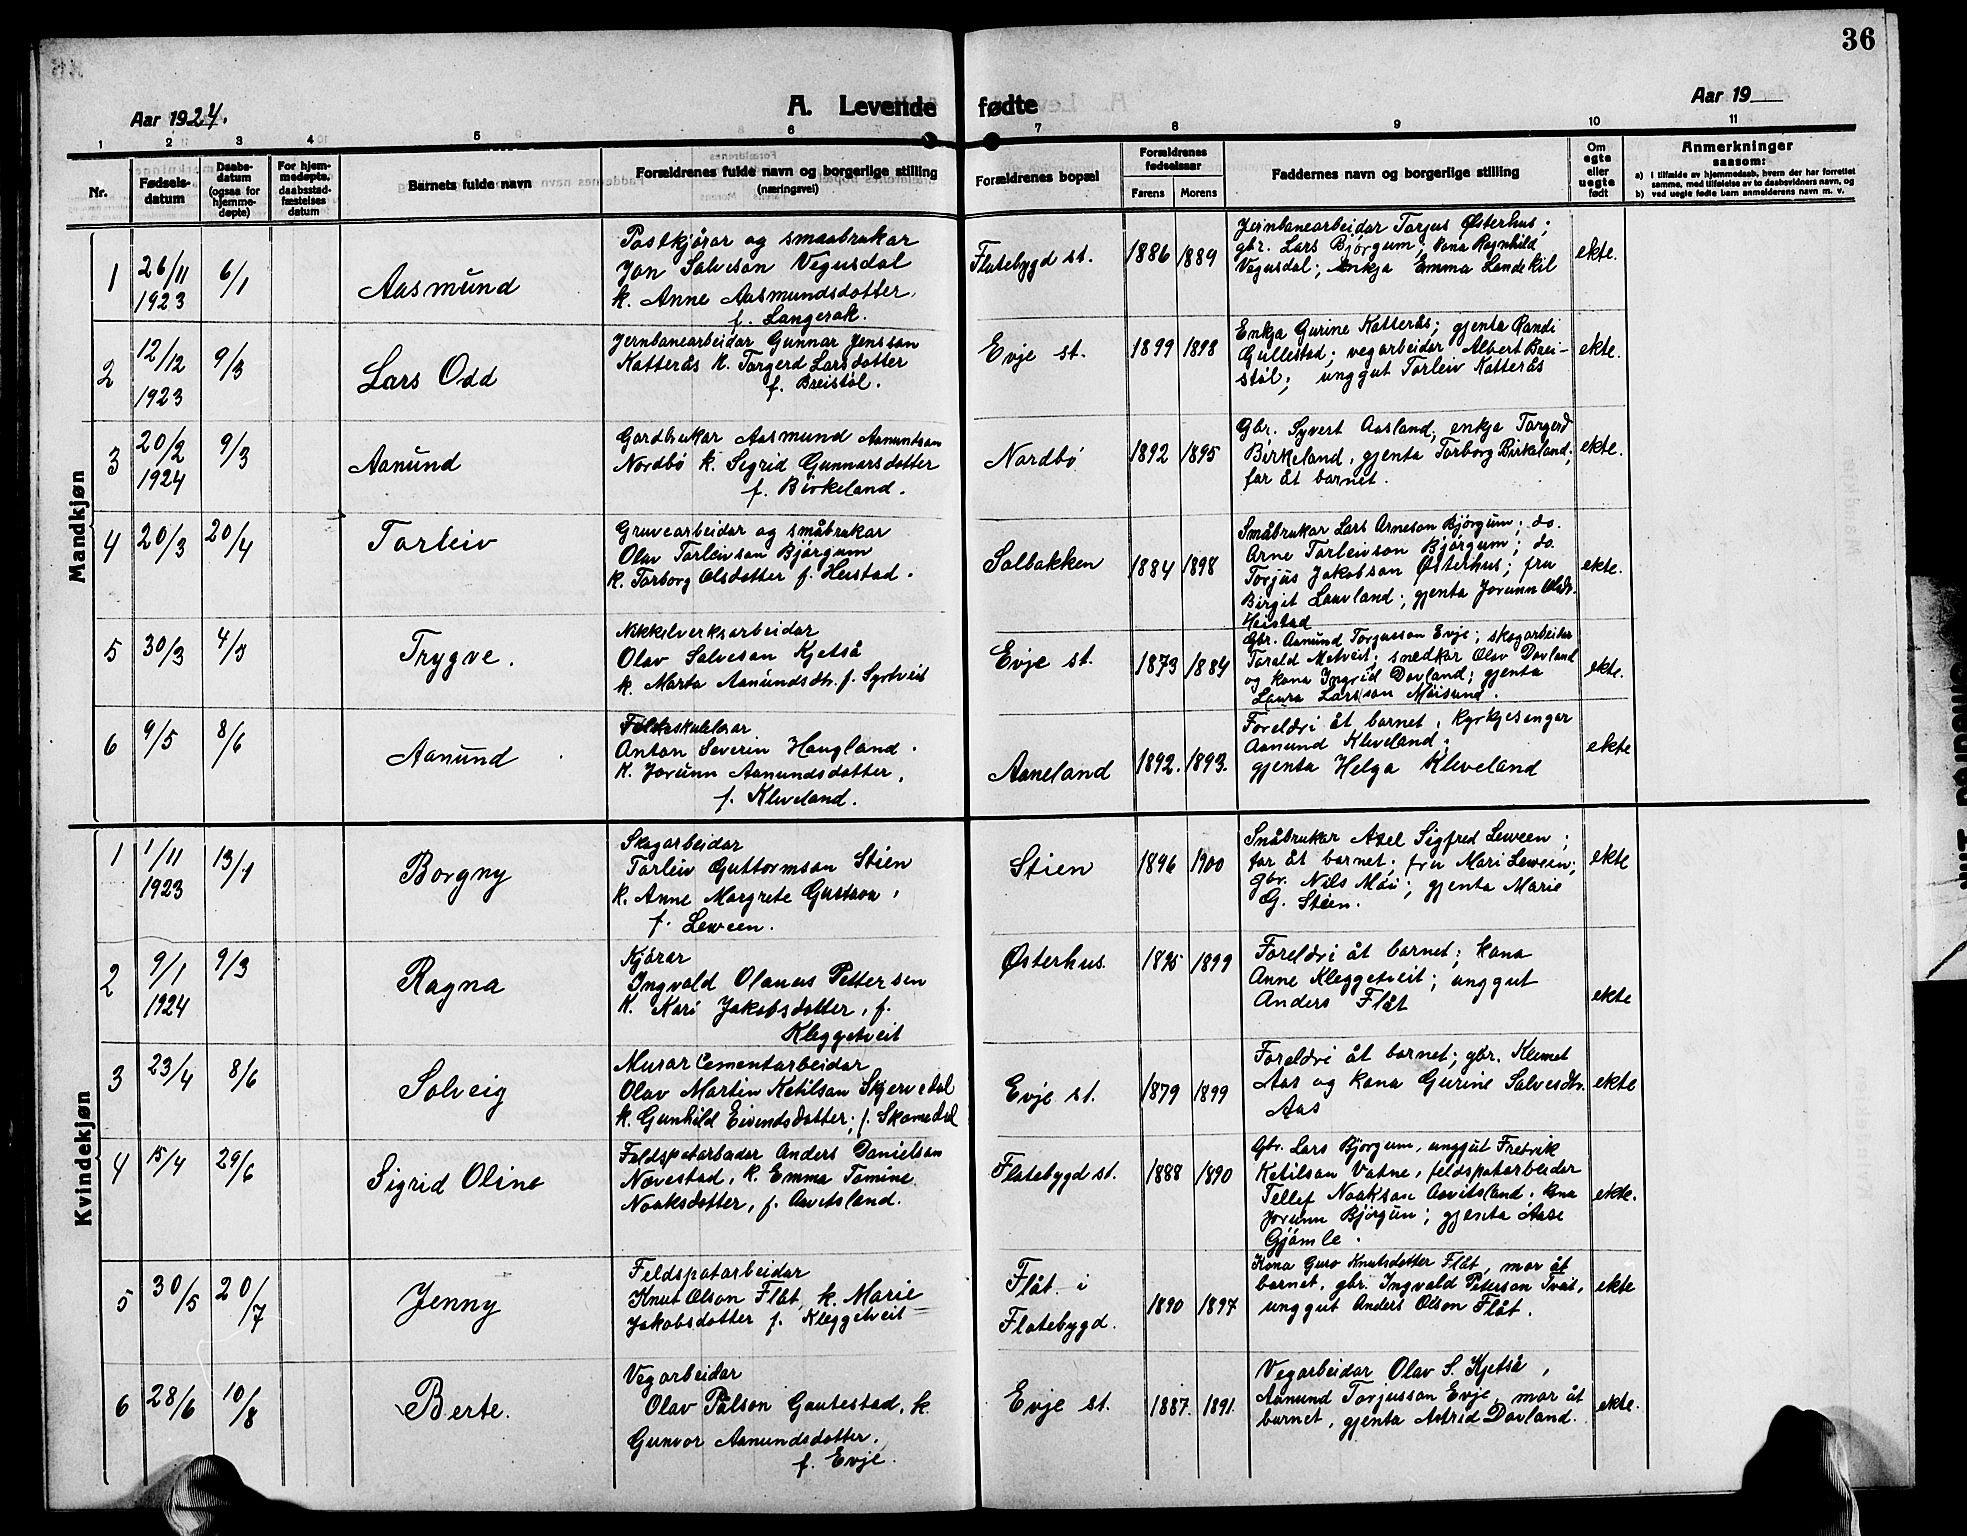 36
Aar 1924.
A. Levende fødte
Aar 19
1 2 3 4 5 6 7 8 9 10 11
Nr.
Fødsels-
datum
Daabs-
datum
(ogsaa for
hjemme-
døpte)
For hjem-
medøpte,
daabsstad-
fæstelses
datum
Barnets fulde navn
Forældrenes fulde navn og borgerlige stilling
(næringsvei)
Forældrenes bopæl
Forældrenes
fødselsaar
Farens Morens
Faddernes navn og borgerlige stilling
Om
egte
eller
uegte
født
Anmerkninger
saasom:
a) I tilfælde av hjemmedaab, hvem der har forrettet
samme, med tilføielse av to daabsvidners navn, og
b) ved uegte fødte barn anmelderens navn m. v.
Mandkjøn
1
26/11
1923
6/1
Aasmund
Postkjørar og smaabrukar
Jon Salveson Vegusdal
k. Anne Aasmundsdotter,
f. Langerak.
Flatebygd st.
1886 1889
Jernbanearbeidar Torjus Østerhus;
gbr. Lars Bjørgum; kona Ragnhild
Vegusdal; enkja Emma Landekil
ekte.
2
12/12
1923
9/3
Lars Odd
Jernbanearbeidar Gunnar Jensson
Katterås k. Torgerd Larsdotter
f. Breistøl.
Evje st.
1899 1898
Enkja Gurine Katterås; gjenta Randi
Gullestad; vegarbeidar Albert Brei-
støl; unggut Torleiv Katterås
ekte.
3
20/2
1924
9/3
Aanund
Gardbrukar Aasmund Aanundson
Nordbø k. Sigrid Gunnarsdotter
f. Birkeland.
Nordbø
1892 1895
Gbr. Syvert Aasland; enkja Torgerd
Birkeland, gjenta Torborg Birkeland;
far åt barnet.
ekte.
4
20/3
20/4
Torleiv
Gruvearbeidar og småbrukar
Olav Torleivson Bjørgum
k. Torborg Olsdotter f. Heistad.
Solbakken
1884 1898
Småbrukar Lars Arneson Bjørgum; do.
Arne Torleivson Bjørgum; do.
Torjus Jakobson Østerhus; fru
Birgit Lauvland; gjenta Jorunn Olsdr.
Heistad
ekte.
5
30/3
Trygve.
Nikkelverksarbeidar
Olav Salveson Kjetså
k. Marta Aanundsdtr. f. Syrtveit
Evje st.
1873 1884
Gbr. Aanund Torjusson Evje; skogarbeider
Torald Metveit; snedkar Olav Dovland
og kona Ingrid Dovland; gjenta
Laura Larsson Moisund.
ekte.
6
9/5
8/6
Aanund
Folkeskulelærar
Anton Severin Haugland.
k. Jorunn Aanundsdotter,
f. Kleveland.
Aaneland
1892. 1893.
Foreldri åt barnet, kyrkjesongar
Aanund Kleveland;
gjenta Helga Kleveland
ekte
Kvindekjøn
1
1/11
1923
13/1
Borgny
Skogarbeidar
Torleiv Guttormson Stien
k. Anne Margrete Gustava,
f. Leween.
Stien
1896 1900
Småbrukar Axel Sigfred Leween;
far åt barnet; fru Mari Leween;
gbr. Nils Moi; gjenta Marie
G. Stien.
ekte
2
9/1
1924
9/3
Ragna
Kjørar
Ingvald Olaneus Pettersen
k. Kari Jakobsdotter, f.
Kleggetveit
Østerhus.
1895 1899
Foreldri åt barnet; kona
Anne Kleggetveit; unggut
Anders Flåt
ekte
3
23/4
8/6
Solveig
Murar Cementarbeidar
Olav Martin Ketilson Skjervedal
k. Gunhild Eivendsdotter; f. Skomedal
Evje st.
1879 1899
Foreldri åt barnet; gbr. Klemet
Aas og kona Gurine Salvesdtr.
Aas
ekte
4
15/4
29/6
Sigrid Oline
Feldspatarbeider Anders Danielson
Nævestad, k. Emma Tomine
Noaksdotter, f. Aavitsland.
Flatebygd st.
1888 1890
Gbr. Lars Bjørgum, unggut Fredrik
Ketilson Vatne, feldspatarbeider
Tellef Noakson Aavitsland, kona
Jorunn Bjørgum; gjenta Aase
Gjømle.
ekte.
5
30/5
20/7
Jenny
Feldspatarbeidar
Knut Olson Flåt, k. Marie
Jakobsdotter f. Kleggetveit
Flåt i
Flatebygd.
1890 1897
Kona Guro Knutsdotter Flåt, mor åt
barnet, gbr. Ingvald Peterson Tveit,
unggut Anders Olson Flåt.
ekte
6
28/6
10/8
Berte.
Vegarbeidar
Olav Pålson Gautestad, k.
Gunvor Aanundsdotter,
f. Evje.
Evje st.
1887. 1891.
Vegarbeidar Olav S. Kjetså,
Aanund Torjusson Evje, mor åt
barnet, gjenta Astrid Dovland.
ekte.